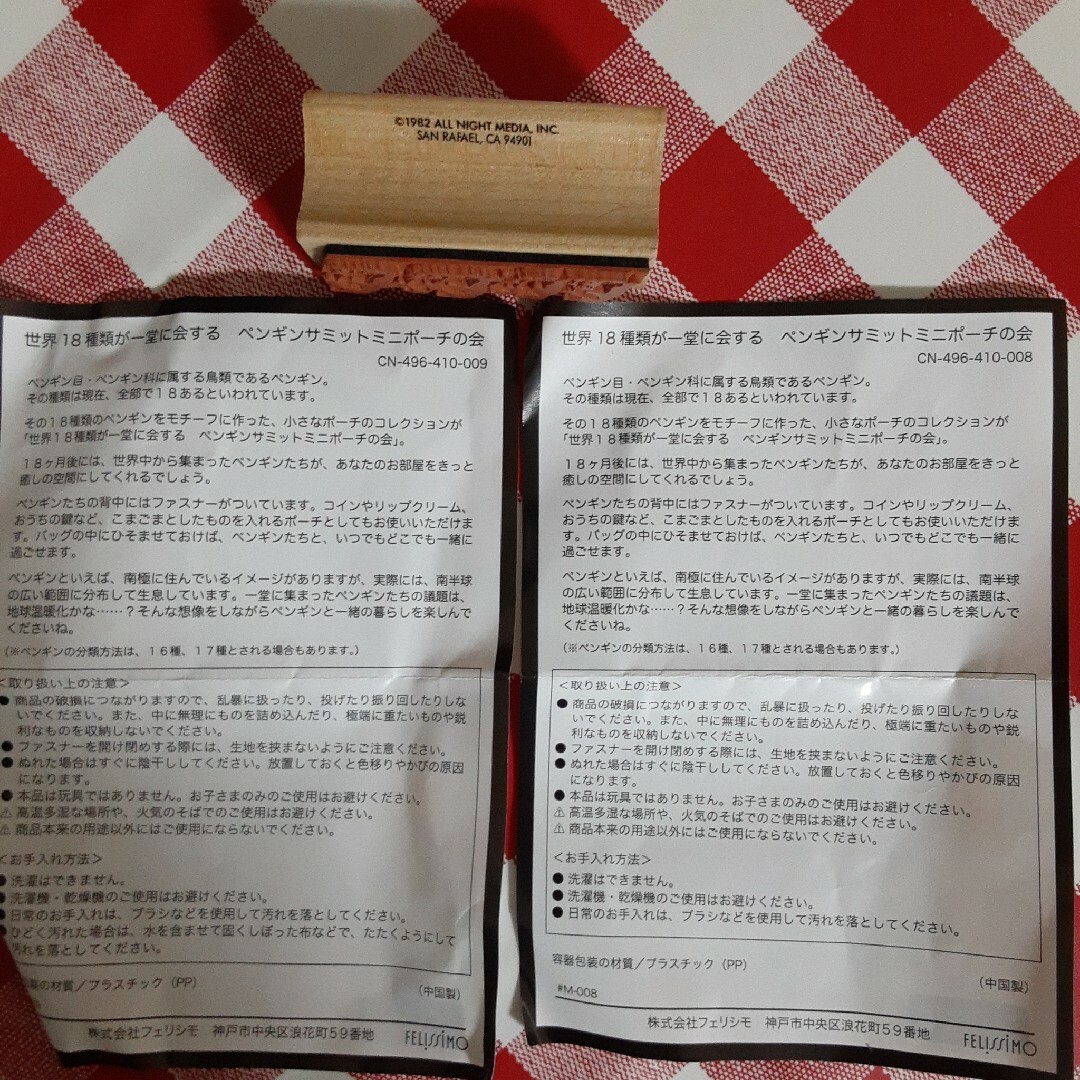 ©1982 ALL NIGHT MEDIA, INC.
SAN RAFAEL, CA 94901
世界18種類が一堂に会する ペンギンサミットミニポーチの会
CN-496-410-009
ペンギン目・ペンギン科に属する鳥類であるペンギン。
その種類は現在、全部で18あるといわれています。
その18種類のペンギンをモチーフに作った、小さなポーチのコレクションが
「世界18種類が一堂に会する ペンギンサミットミニポーチの会」。
18ヶ月後には、世界中から集まったペンギンたちが、あなたのお部屋をきっと
癒しの空間にしてくれるでしょう。
ペンギンたちの背中にはファスナーがついています。コインやリップクリーム、
おうちの鍵など、こまごまとしたものを入れるポーチとしてもお使いいただけま
す。バッグの中にひそませておけば、ペンギンたちと、いつでもどこでも一緒に
過ごせます。
ペンギンといえば、南極に住んでいるイメージがありますが、実際には、南半球
の広い範囲に分布して生息しています。一堂に集まったペンギンたちの議題は、
地球温暖化かな……?そんな想像をしながらペンギンと一緒の暮らしを楽しんで
くださいね。
(※ペンギンの分類方法は、16種、17種とされる場合もあります。)
<取り扱い上の注意>
● 商品の破損につながりますので、乱暴に扱ったり、投げたり振り回したりしな
いでください。また、中に無理にものを詰め込んだり、極端に重たいものや鋭
利なものを収納しないでください。
● ファスナーを開け閉めする際には、生地を挟まないようにご注意ください。
● ぬれた場合はすぐに陰干ししてください。放置しておくと色移りやかびの原因
になります。
● 本品は玩具ではありません。お子さまのみのご使用はお避けください。
⚠ 高温多湿な場所や、火気のそばでのご使用はお避けください。
⚠ 商品本来の用途以外にはご使用にならないでください。
<お手入れ方法>
● 洗濯はできません。
● 洗濯機・乾燥機のご使用はお避けください。
● 日常のお手入れは、ブラシなどを使用して汚れを落としてください。
● ひどく汚れた場合は、水を含ませて固くしぼった布などで、たたくようにして
汚れを落としてください。
装の材質/プラスチック(PP)
(中国製)
株式会社フェリシモ 神戸市中央区浪花町59番地 FELISSIMO
世界18種類が一堂に会する ペンギンサミットミニポーチの会
CN-496-410-008
ペンギン目・ペンギン科に属する鳥類であるペンギン。
その種類は現在、全部で18あるといわれています。
その18種類のペンギンをモチーフに作った、小さなポーチのコレクションが
「世界18種類が一堂に会する ペンギンサミットミニポーチの会」。
18ヶ月後には、世界中から集まったペンギンたちが、あなたのお部屋をきっと
癒しの空間にしてくれるでしょう。
ペンギンたちの背中にはファスナーがついています。コインやリップクリーム、
おうちの鍵など、こまごまとしたものを入れるポーチとしてもお使いいただけま
す。バッグの中にひそませておけば、ペンギンたちと、いつでもどこでも一緒に
過ごせます。
ペンギンといえば、南極に住んでいるイメージがありますが、実際には、南半球
の広い範囲に分布して生息しています。一堂に集まったペンギンたちの議題は、
地球温暖化かな……?そんな想像をしながらペンギンと一緒の暮らしを楽しんで
くださいね。
(※ペンギンの分類方法は、16種、17種とされる場合もあります。)
<取り扱い上の注意>
● 商品の破損につながりますので、乱暴に扱ったり、投げたり振り回したりしな
いでください。また、中に無理にものを詰め込んだり、極端に重たいものや鋭
利なものを収納しないでください。
● ファスナーを開け閉めする際には、生地を挟まないようにご注意ください。
● ぬれた場合はすぐに陰干ししてください。放置しておくと色移りやかびの原因
になります。
● 本品は玩具ではありません。お子さまのみのご使用はお避けください。
⚠ 高温多湿な場所や、火気のそばでのご使用はお避けください。
⚠ 商品本来の用途以外にはご使用にならないでください。
<お手入れ方法>
● 洗濯はできません。
● 洗濯機・乾燥機のご使用はお避けください。
● 日常のお手入れは、ブラシなどを使用して汚れを落としてください。
容器包装の材質/プラスチック(PP)
(中国製)
#M-008
株式会社フェリシモ 神戸市中央区浪花町59番地 FELISSIMO